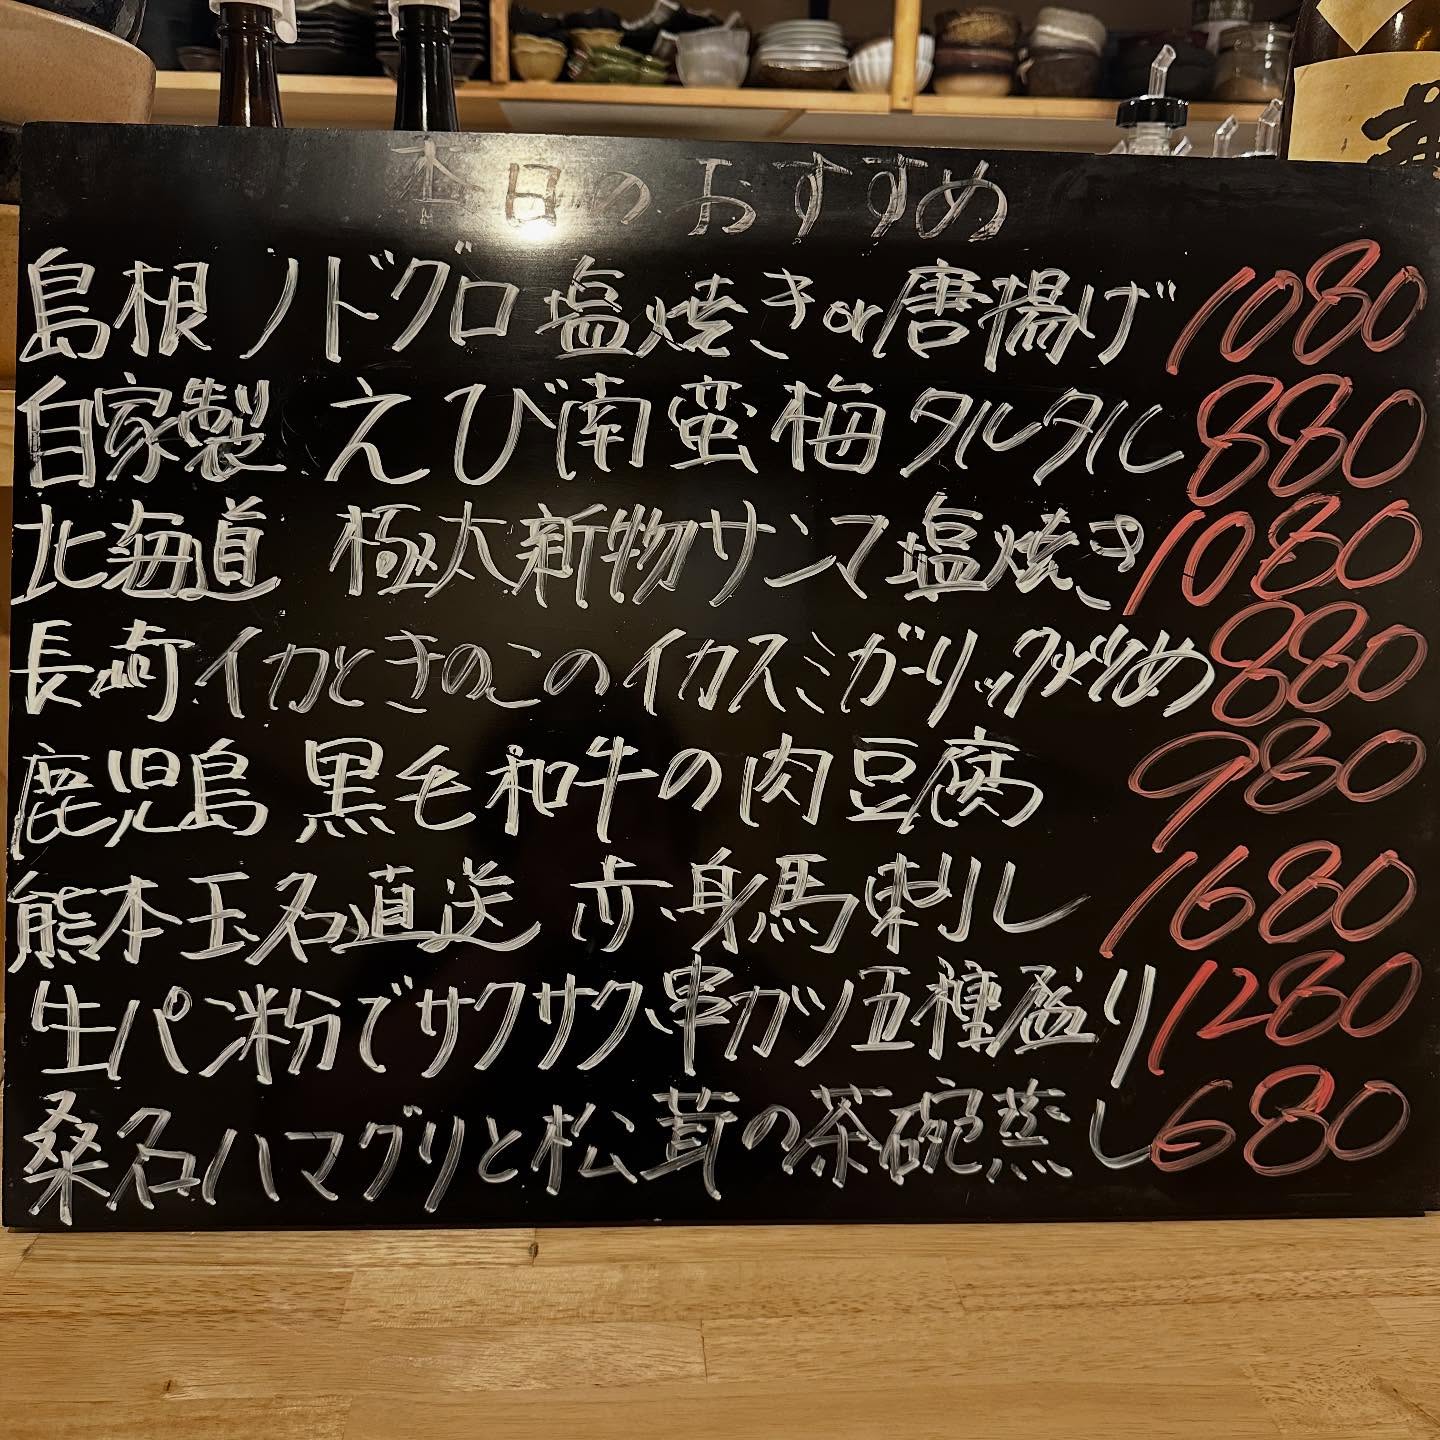 本日のおすすめ
島根 ノドグロ 塩焼きor唐揚げ 1080
自家製 えび南蛮梅タルタル 880
北海道 極太新物サンマ塩焼き 1080
長崎 イカときのこのイカスミガーリック炒め 880
鹿児島 黒毛和牛の肉豆腐 980
熊本玉名直送 赤身馬刺し 1680
生パン粉でサクサク串カツ五種盛り 1280
桑名ハマグリと松茸の茶碗蒸し 680